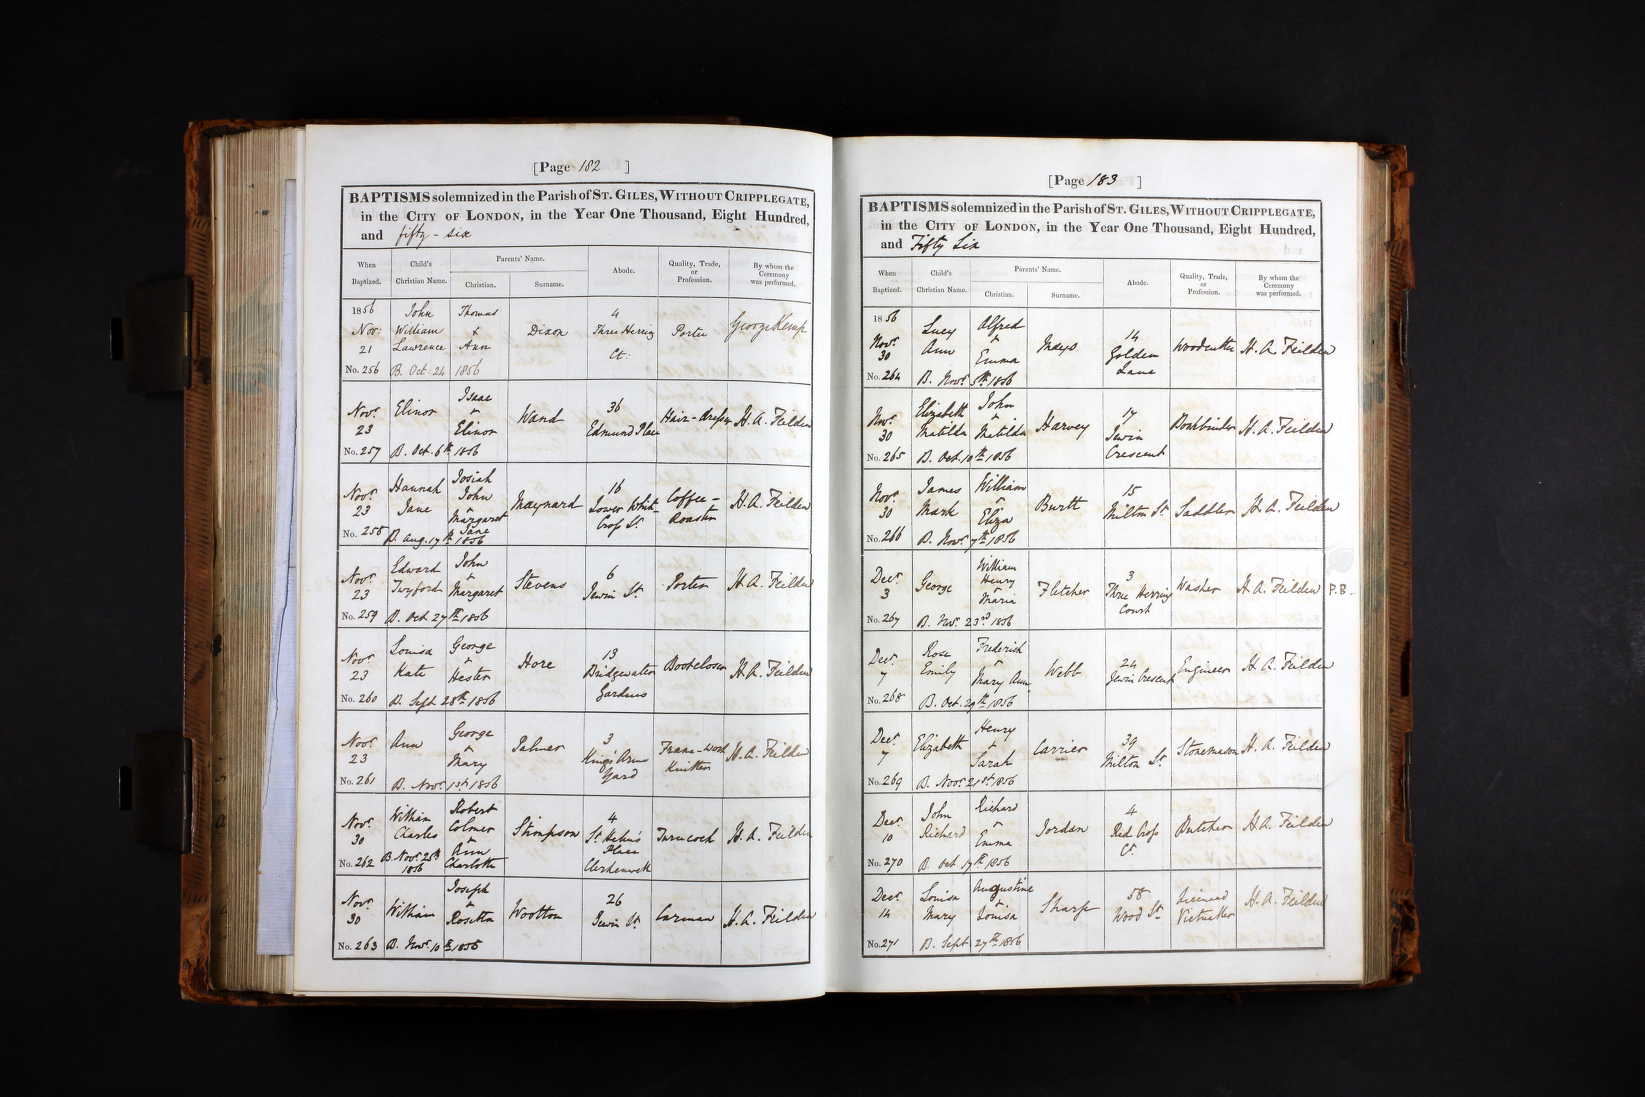 [Page 182 ]
BAPTISMS solemnized in the Parish of ST. GILES, WITHOUT CRIPPLEGATE,
in the CITY OF LONDON, in the Year One Thousand, Eight Hundred,
and fifty-six
When Baptized. Child's Christian Name. Parents' Name. Christian. Surname. Abode. Quality, Trade, or Profession. By whom the Ceremony was performed.
1856 John Thomas 4
Nov: William & Dixon Three Herring Porter George Kemp
21 Lawrence Ann Ct:
No. 256 B. Oct. 24 1856
Isaac
Novr. Elinor & Wand 36 Hair-dresser H. A. Feilden
23 Elinor Edmund Place
No. 257 B. Oct. 6th 1856
Josiah
Novr. Hannah John 16 Coffee-
23 Jane & Maynard Lower White Roaster H. A. Feilden
Margaret Cross St.
Jane
No. 258 B. Aug. 17th 1856
Novr. Edward John 6
23 Twyford & Stevens Jewin St. Porter H. A. Feilden
Margaret
No. 259 B. Oct 27th 1856
Novr. Louisa George 13
23 Kate & Hore Bridgewater Bootcloser H. A. Feilden
Hester Gardens
No. 260 B. Sept. 28th 1856
Novr. Ann George 3
23 & Palmer King's Arms Frame-work H. A. Feilden
Mary Yard Knitter
No. 261 B. Novr. 1st 1856
Novr. William Robert 4
30 Charles Colmer Stimpson St. Helen's Turncock H. A. Feilden
& Place
Ann Clerkenwell
Charlotte
No. 262 B. Novr. 25th 1856
Novr. Joseph 26
30 William & Wootton Jewin St. Carman H. A. Feilden
Rosetta
No. 263 B. Novr. 10th 1856
[Page 183 ]
BAPTISMS solemnized in the Parish of ST. GILES, WITHOUT CRIPPLEGATE,
in the CITY OF LONDON, in the Year One Thousand, Eight Hundred,
and Fifty Six
When Baptized. Child's Christian Name. Parents' Name. Christian. Surname. Abode. Quality, Trade, or Profession. By whom the Ceremony was performed.
1856
Novr. Lucy Alfred 14
30 Ann & Mays Golden Woodcutter H. A. Feilden
Emma Lane
No. 264 B. Novr. 5th 1856
Novr. Elizabeth John 17
30 Matilda & Harvey Jewin Bookbinder H. A. Feilden
Matilda Crescent
No. 265 B. Oct. 10th 1856
Novr. James William 15
30 Mark & Burtt Milton St. Saddler H. A. Feilden
Eliza
No. 266 B. Novr. 7th 1856
Decr. William 3
3 George Henry Fletcher Three Herring Washer H. A. Feilden P.B.
& Court
Maria
No. 267 B. Novr. 23rd 1856
Decr. Rose Frederick 24
7 Emily & Webb Jewin Crescent Engineer H. A. Feilden
Mary Ann
No. 268 B. Oct. 29th 1856
Decr. Henry 39
7 Elizabeth & Carrier Milton St. Stonemason H. A. Feilden
Sarah
No. 269 B. Novr. 21st 1856
Decr. John Richard 4
10 Richard & Jordan Red Cross Butcher H. A. Feilden
Emma Ct.
No. 270 B. Oct. 17th 1856
Decr. Louisa Augustine 58 Licensed
14 Mary & Sharp Wood St. Victualler H. A. Feilden
Louisa
No. 271 B. Sept. 27th 1856